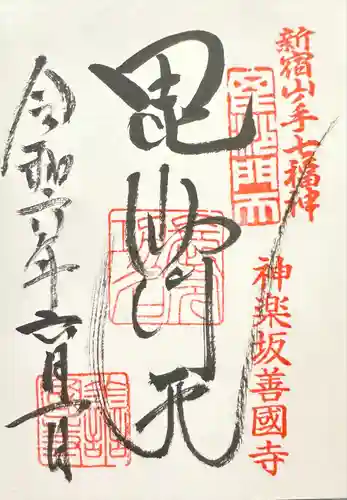 新宿山ノ手七福神
神楽坂善國寺
毘沙門天
令和六年六月一日